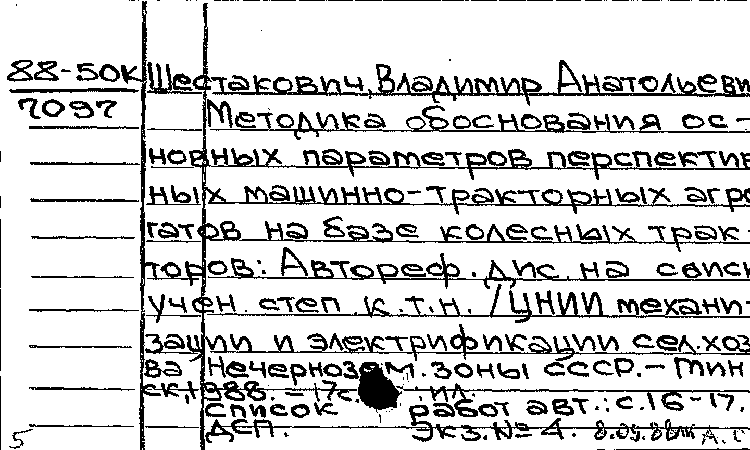 88-50К Шестакович, Владимир Анатольеви
7097 Методика обоснования ос-
новных параметров перспектив
ных машинно-тракторных агре
гатов на базе колесных трак-
торов: Автореф. дис. на соиск
учен степ к.т.н. /ЦНИИ механи-
зации и электрификации сел.хоз
ва Нечернозем. зоны СССР.- Мин
ск, 1988. - 17с. ил
Список работ авт.: с.16-17.
ДСП. Экз.№ 4.
5